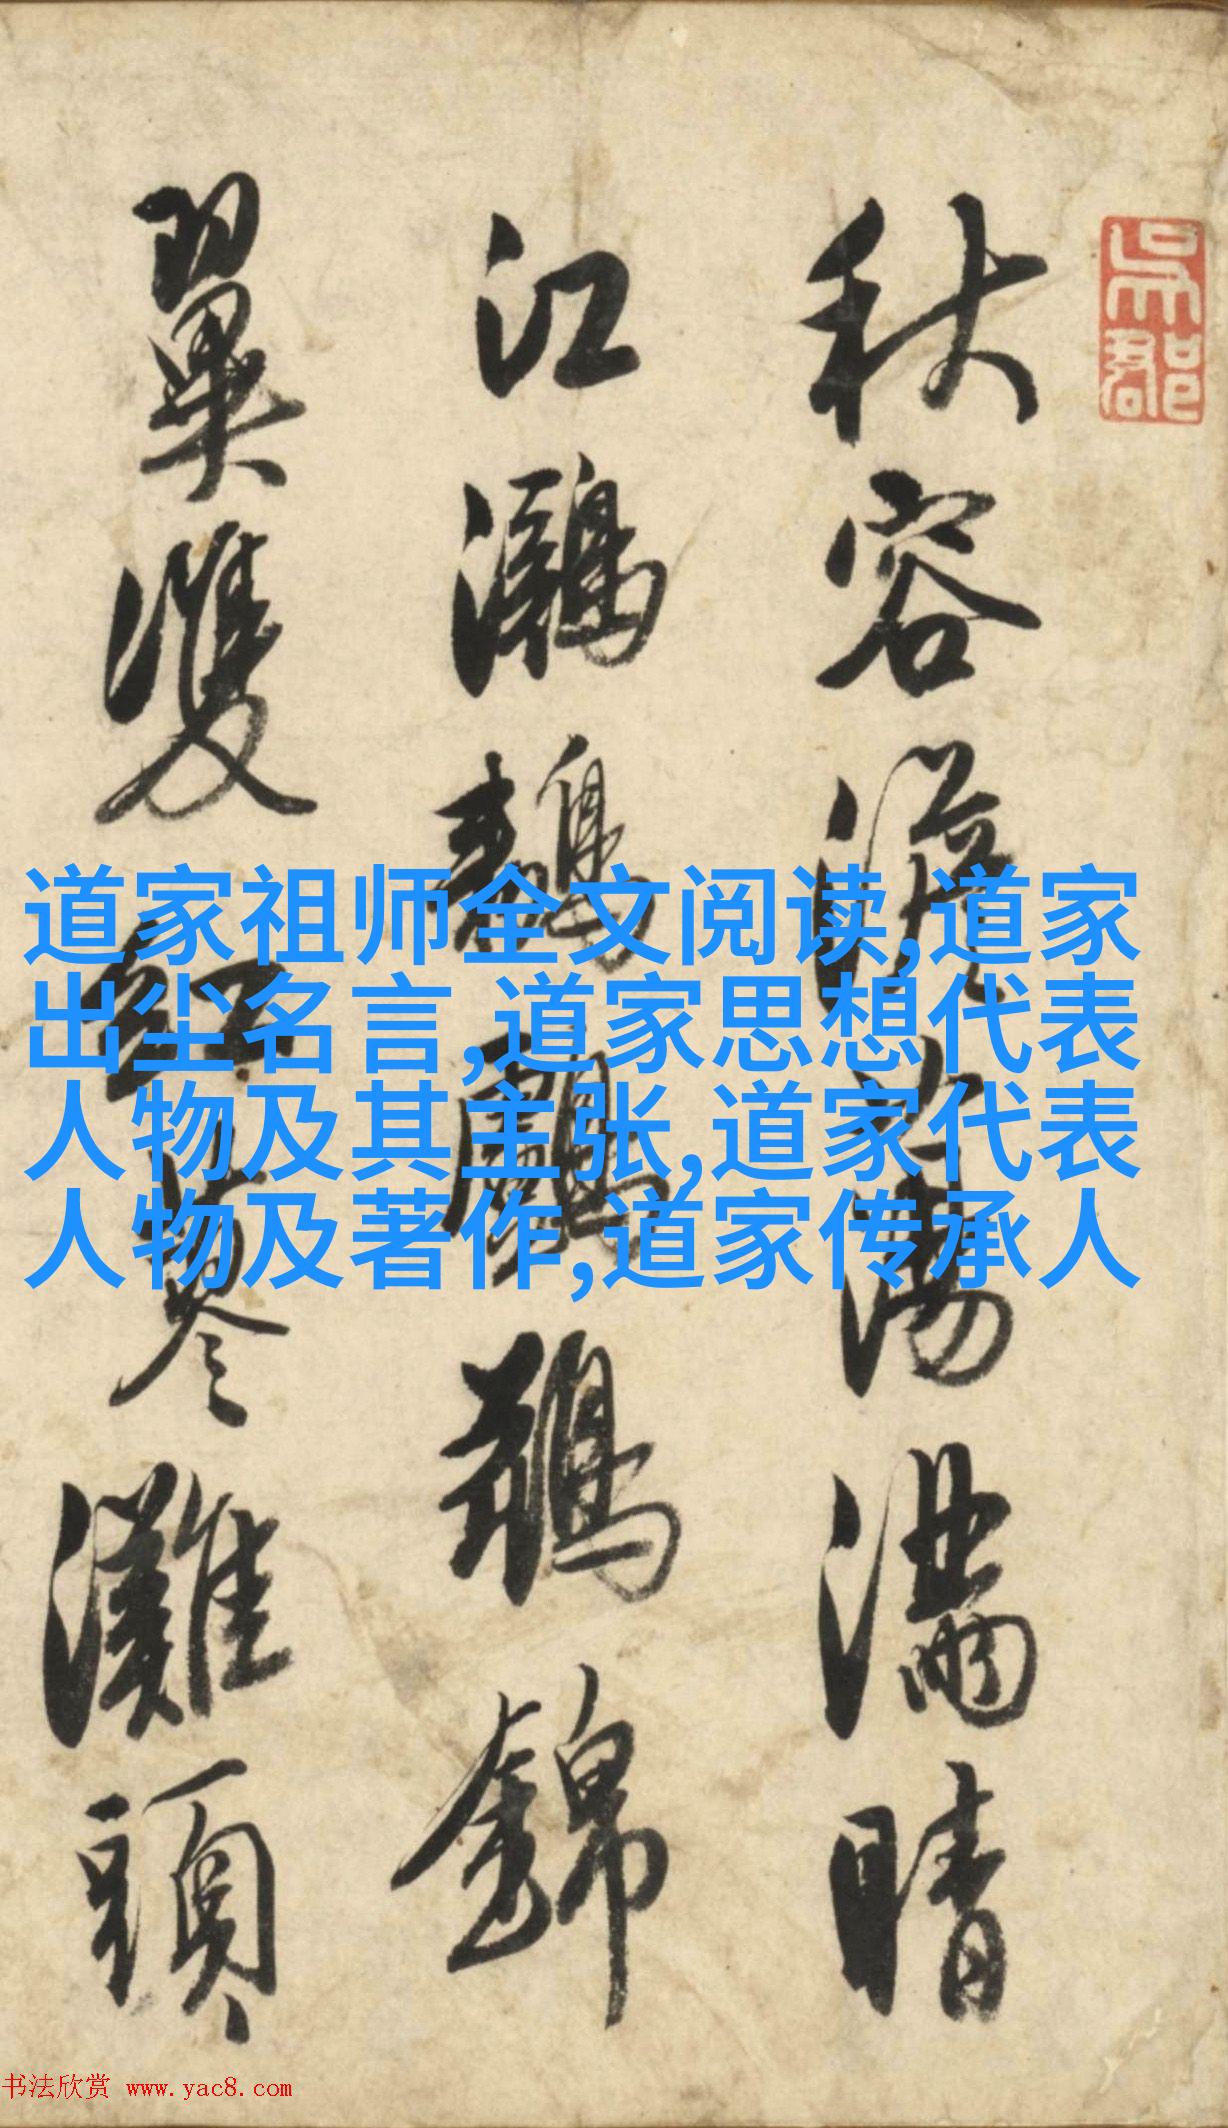 吳郡
秋容蕩滿晴
江鸂鶒鸕鷀錦
翼雙紅蓼灘頭
道家祖师全文阅读,道家
出尘名言,道家思想代表
人物及其主张,道家代表
人物及著作,道家传承人
书法欣赏 www.yac8.com